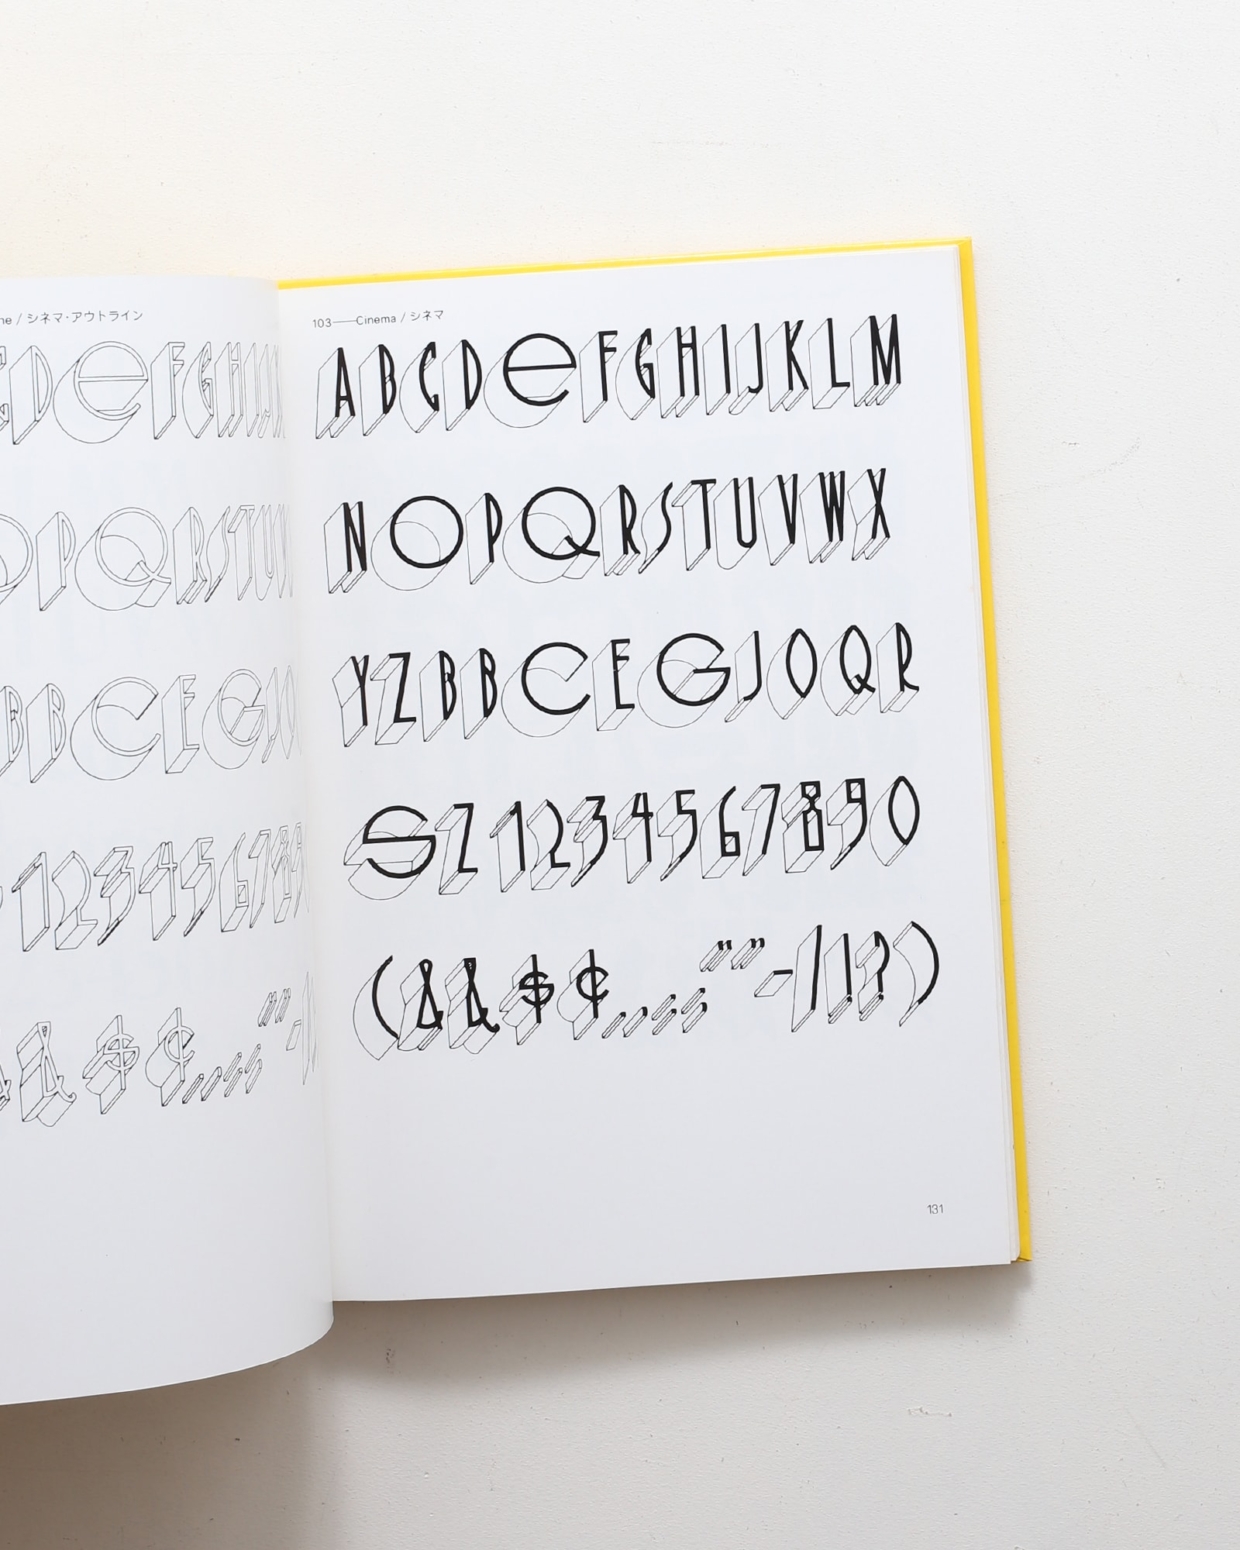 ne / シネマ・アウトライン
CDeFGHIJ
OPQRSTUV
BBCEGJO
123456789
&&$¢.,:;""-/
103——Cinema / シネマ
ABCDeFGHIJKLM
NOPQRSTUVWX
YZBBCEGJOQR
SZ1234567890
(&&$¢.,:;""-/!?)
131